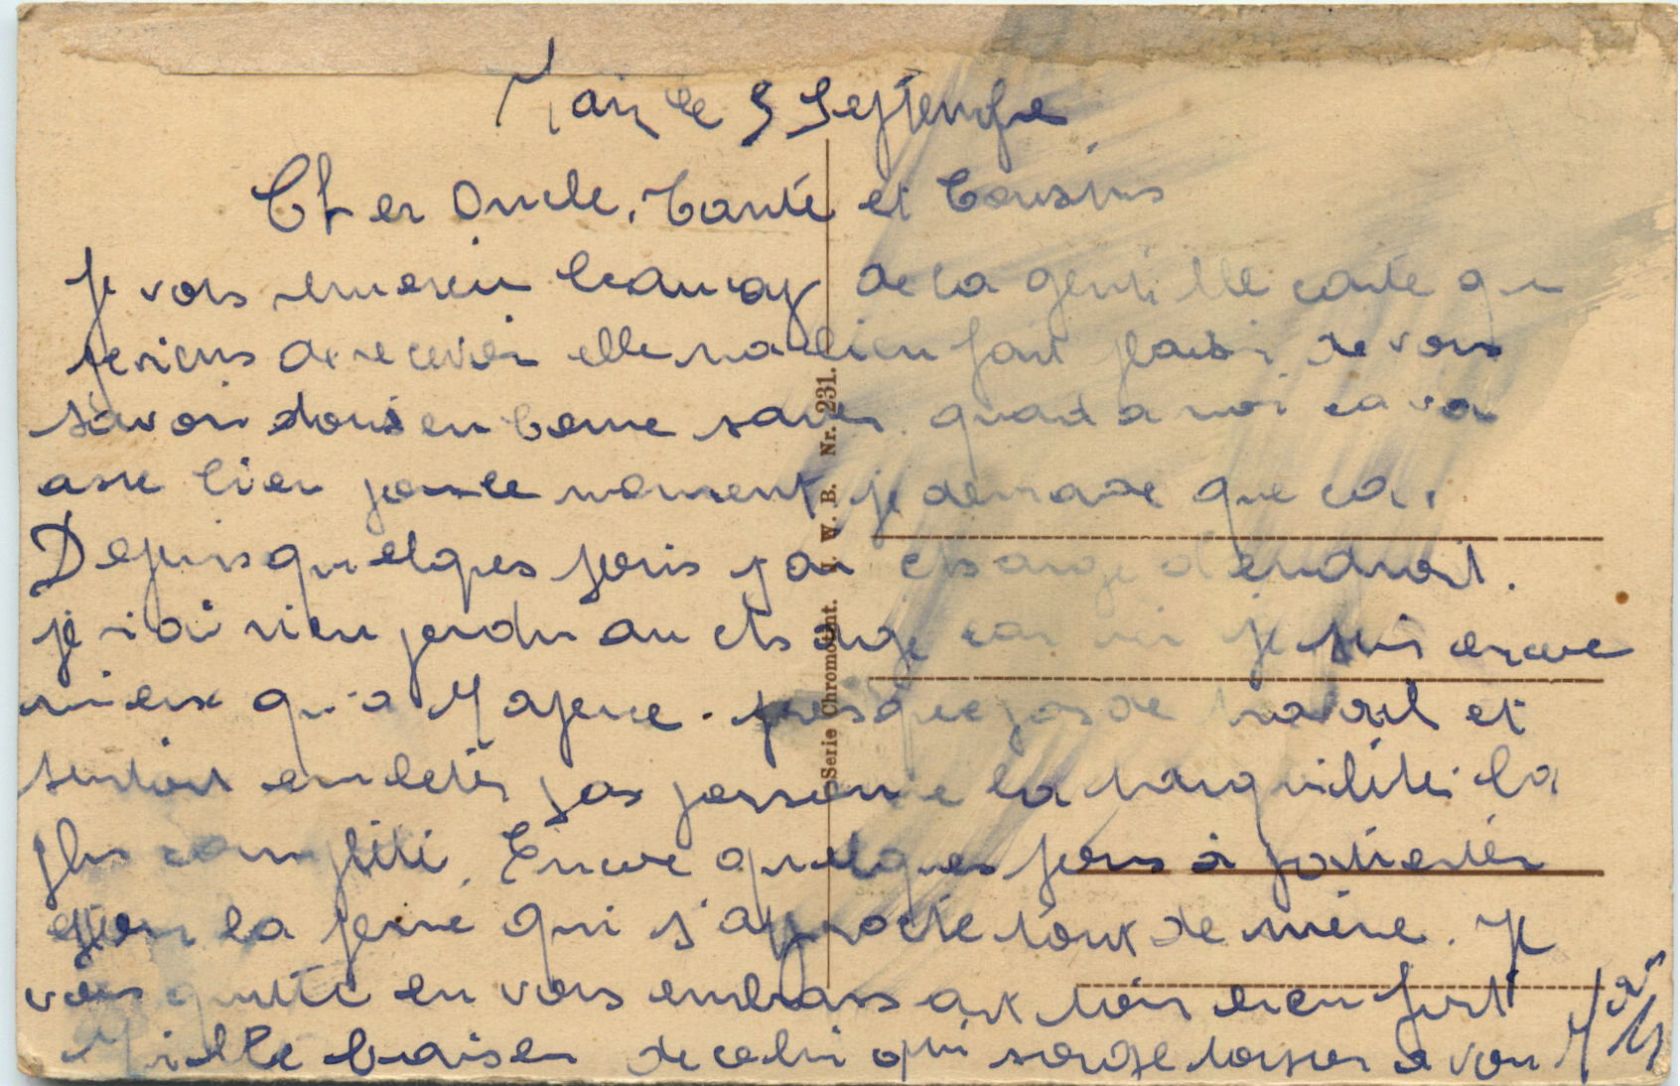 le 5 Septembre
Cher Oncle, Tante et Cousins
Je vous remercie beaucoup de la gentille carte que
je viens de recevoir elle ma bien fait plaisir de vous
savoir tous en bonne santé quand a moi ca va
asse bien pour le moment je demande que ca.
Depuis quelques jours j'ai changé d'endroit.
je n'ai rien perdu au change car ici je suis encore
mieux qu'a Mayence. presque pas de travail et
surtout embeter pas personne la tranquilité la
plus complète. Encore quelques jours à patienter
la qui s'approche tout de même. Je
vous quitte en vous embrassant tous bien fort
Mille baisers de celui qui songe toujours a vous
Serie Chromotint. W. B. Nr. 231.